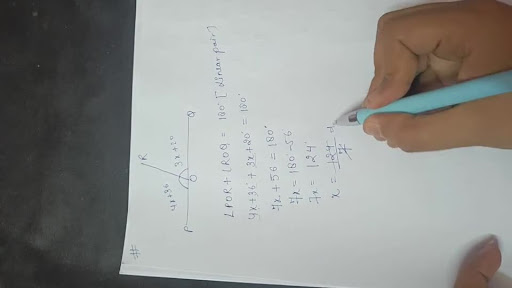 #
R
4x+36
3x+20
P
O
Q
∠POR + ∠ROQ = 180° [Linear pair]
4x+36 + 3x+20 = 180°
7x + 56 = 180°
7x = 180-56
7x = 124
x = 124/7 =